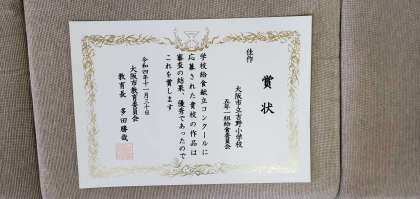 佳作
賞状
大阪市立吉野小学校
五年一組給食委員会
学校給食献立コンクールに
応募された貴校の作品は
審査の結果、優秀であったので
これを賞します
令和四年十一月三十日
大阪市教育委員会
教育長 多田勝哉